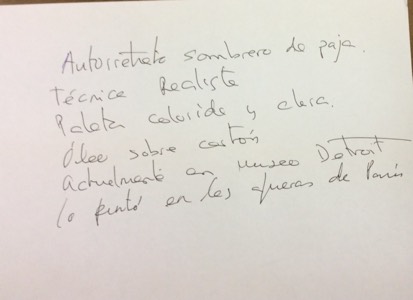 Autorretrato sombrero de paja.
Técnica Realista
Paleta colorida y clara.
Óleo sobre cartón
actualmente en museo Detroit
lo pintó en las afueras de París